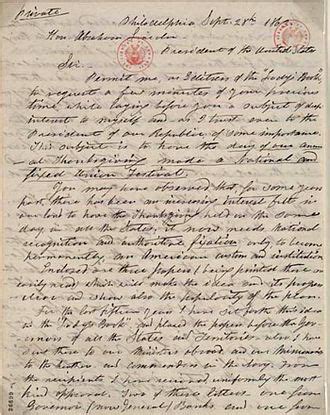 Private
Philadelphia Sept. 28th 1863.
Hon. Abraham Lincoln
President of the United States
Sir.
Permit me, as Editress of the "Lady's Book",
to request a few minutes of your precious
time, while laying before you a subject of deep
interest to myself and as I trust even to the
President of our Republic, of some importance.
This subject is to have the day of our annu-
al Thanksgiving made a National and
fixed Union Festival.
You may have observed that, for some years
past, there has been an increasing interest felt in
our land to have the Thanksgiving held on the same
day, in all the States; it now needs National
recognition and authoritive fixation, only, to become
permanently, an American custom and institution.
Enclosed are three papers (being printed these are
easily read) which will make the idea and its progress
clear and show also the popularity of the plan.
For the last fifteen years I have set forth this idea
in the "Lady's Book", and placed the papers before the Gov-
ernors of all the States and Territories — also I have
sent these to our Ministers abroad, and our Missionaries
to the heathen — and commanders in the Navy. From
the recipients I have received, uniformly the most
kind approval. Two of these letters, one from
Governor (now General) Banks and one from